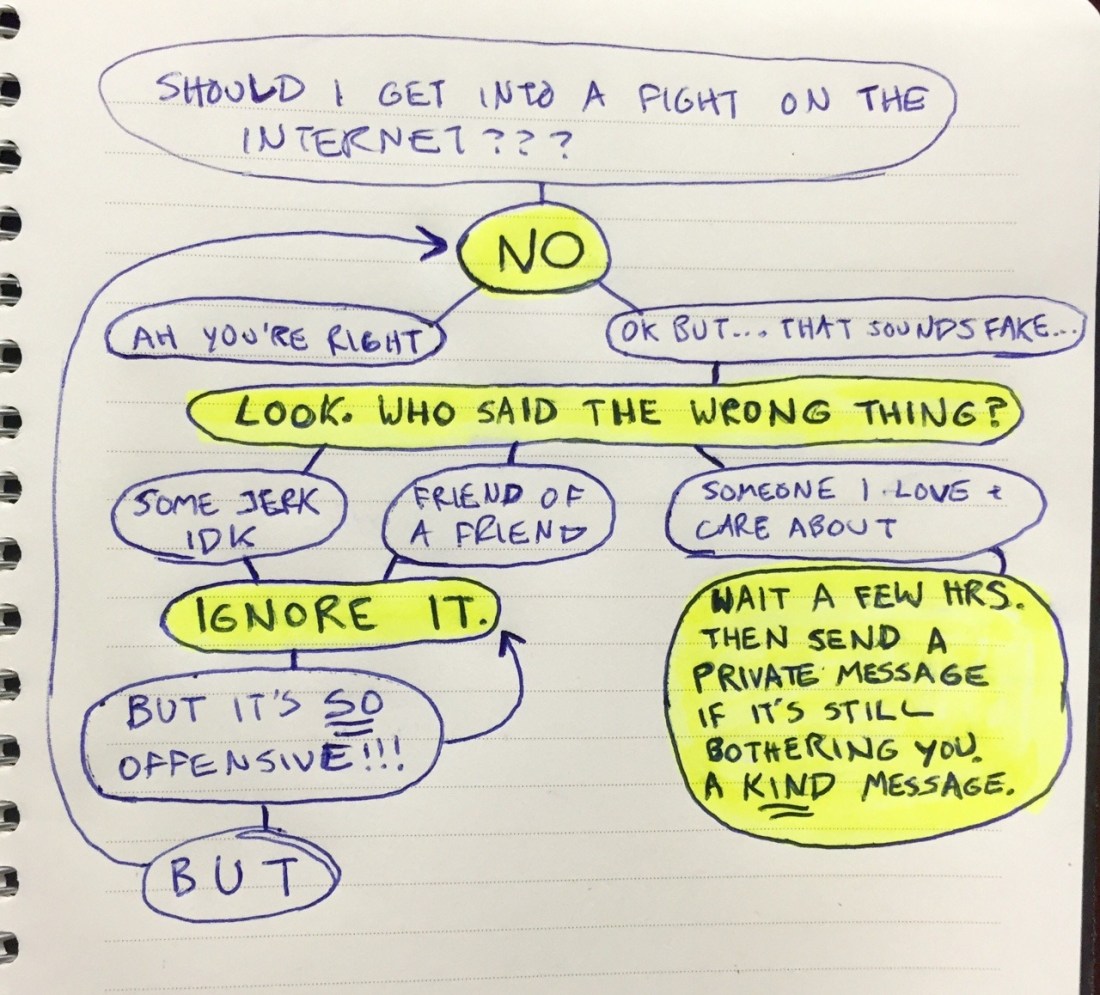 SHOULD I GET INTO A FIGHT ON THE
INTERNET???
NO
AH YOU'RE RIGHT
OK BUT... THAT SOUNDS FAKE...
LOOK. WHO SAID THE WRONG THING?
SOME JERK
IDK
FRIEND OF
A FRIEND
SOMEONE I LOVE +
CARE ABOUT
IGNORE IT.
WAIT A FEW HRS.
THEN SEND A
PRIVATE MESSAGE
IF IT'S STILL
BOTHERING YOU.
A KIND MESSAGE.
BUT IT'S SO
OFFENSIVE!!!
BUT